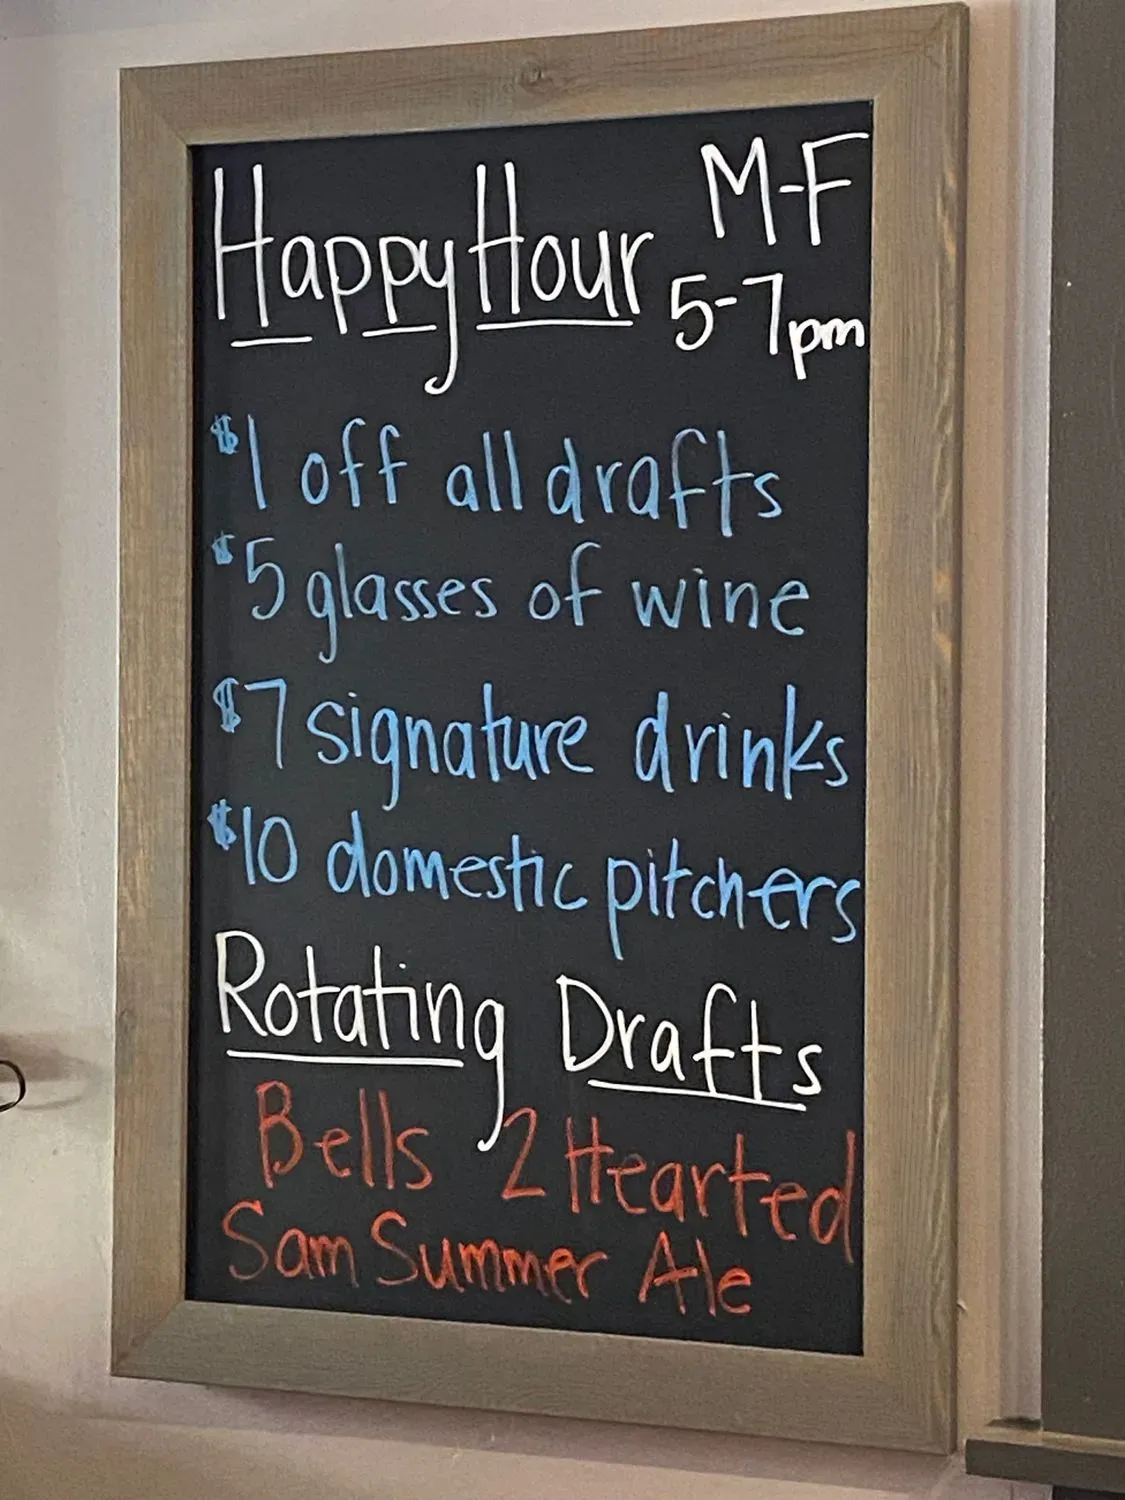 Happy Hour M-F
5-7pm
$1 off all drafts
$5 glasses of wine
$7 signature drinks
$10 domestic pitchers
Rotating Drafts
Bells 2 Hearted
Sam Summer Ale